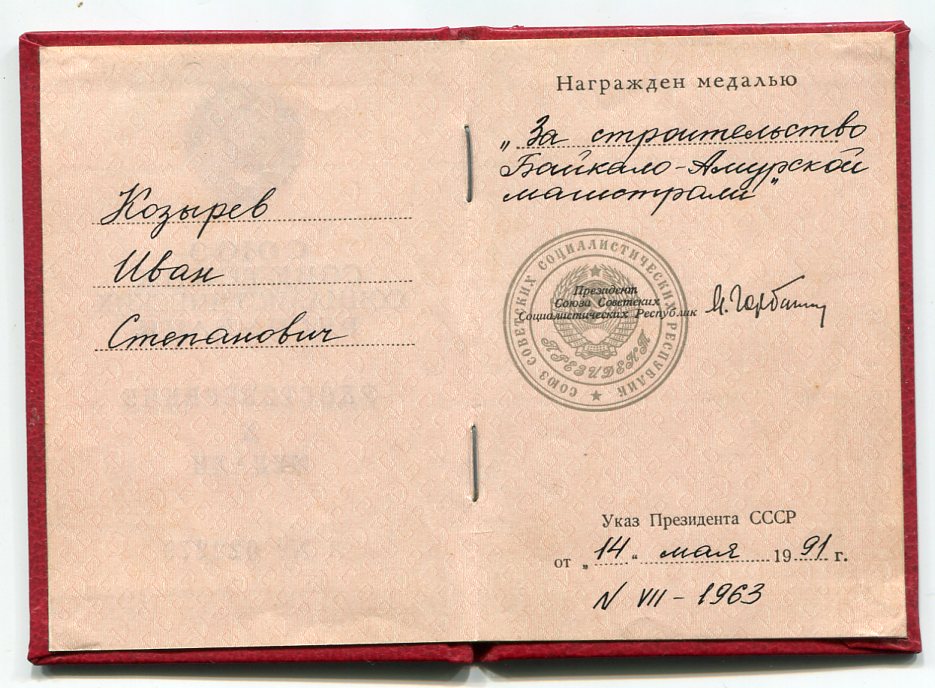 Козырев
Иван
Степанович
Награжден медалью
„За строительство
Байкало-Амурской
магистрали"
СОЮЗ СОВЕТСКИХ СОЦИАЛИСТИЧЕСКИХ РЕСПУБЛИК
Президент
Союза Советских
Социалистических Республик
М. Горбачев
ПРЕЗИДЕНТ
Указ Президента СССР
от „14“ мая 1991 г.
N VII - 1963